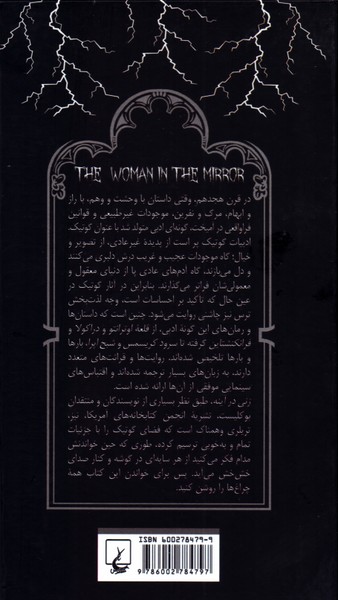 THE WOMAN IN THE MIRROR
در قرن هجدهم، وقتی داستان با وحشت و وهم، با راز
و ابهام، مرگ و نفرین، موجودات غیرطبیعی و قوانین
فراواقعی در آمیخت، گونه‌ای ادبی متولد شد با عنوان گوتیک.
ادبیات گوتیک پر است از پدیده غیرعادی، از تصویر و
خیال؛ گاه موجودات عجیب و غریب درش دلبری می‌کنند
و دل می‌بازند، گاه آدم‌های عادی پا از دنیای معقول و
معمولی‌شان فراتر می‌گذارند. بنابراین در آثار گوتیک در
عین حال که تاکید بر احساسات است، وجه لذت‌بخش
ترس نیز چاشنی روایت می‌شود. چنین است که داستان‌ها
و رمان‌های این گونه ادبی، از قلعه اوترانتو و دراکولا و
فرانکنشتاین گرفته تا سرود کریسمس و شبح اپرا، بارها
و بارها تلخیص شده‌اند، روایت‌ها و قرائت‌های متعدد
دارند، به زبان‌های بسیار ترجمه شده‌اند و اقتباس‌های
سینمایی موفقی از آن‌ها ارائه شده است.
زنی در آینه، طبق نظر بسیاری از نویسندگان و منتقدان
بوکلیست، نشریه انجمن کتابخانه‌های آمریکا، نیز،
تریلری وهمناک است که فضای گوتیک را با جزئیات
تمام و به‌خوبی ترسیم کرده، طوری که حین خواندنش
مدام فکر می‌کنید از هر سایه‌ای در گوشه و کنار صدای
خش‌خش می‌آید. پس برای خواندن این کتاب همه
چراغ‌ها را روشن کنید.
ISBN 600278479-9
9 786002 784797